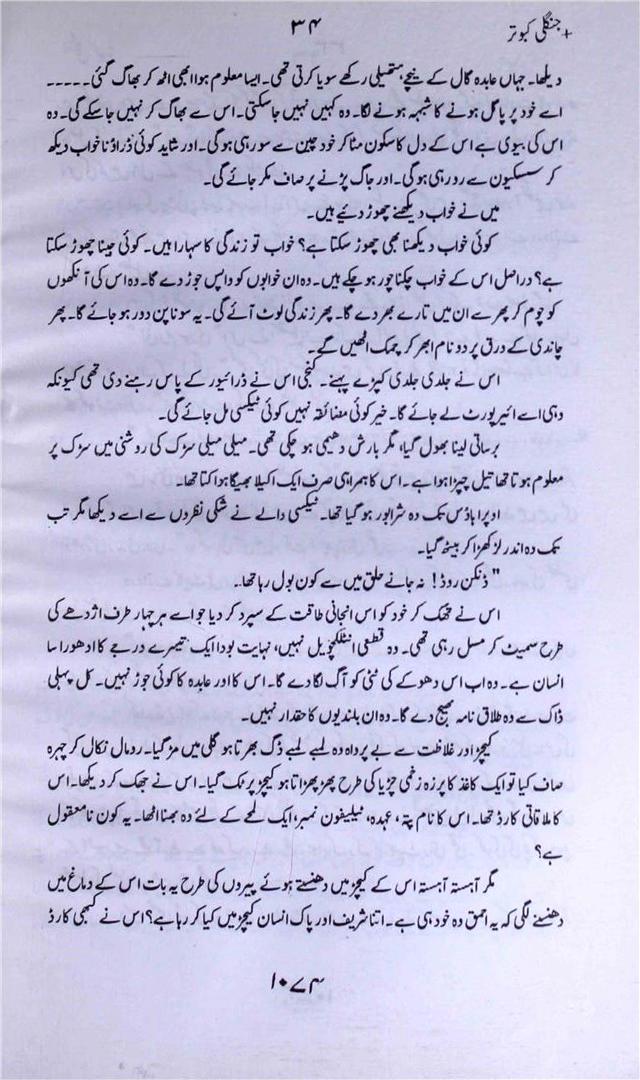 + جنگلی کبوتر
۳۴
دیکھا۔ جہاں عابدہ گال کے نیچے ہتھیلی رکھے سویا کرتی تھی۔ ایسا معلوم ہوا ابھی اٹھ کر بھاگ گئی ۔۔۔۔۔
اسے خود پر پاگل ہونے کا شبہہ ہونے لگا۔ وہ کہیں نہیں جاسکتی۔ اس سے بھاگ کر نہیں جاسکے گی۔ وہ
اس کی بیوی ہے اس کے دل کا سکون مٹا کر خود چین سے سو رہی ہوگی۔ اور شاید کوئی ڈراؤنا خواب دیکھ
کر سسکیوں سے رو رہی ہوگی۔ اور جاگ پڑنے پر صاف مکر جائے گی۔
میں نے خواب دیکھنے چھوڑ دیے ہیں۔
کوئی خواب دیکھنا بھی چھوڑ سکتا ہے؟ خواب تو زندگی کا سہارا ہیں۔ کوئی جینا چھوڑ سکتا
ہے؟ دراصل اس کے خواب چکنا چور ہو چکے ہیں۔ وہ ان خوابوں کو واپس جوڑ دے گا۔ وہ اس کی آنکھوں
کو چوم کر پھر سے ان میں تارے بھر دے گا۔ پھر زندگی لوٹ آئے گی۔ یہ سوناپن دور ہو جائے گا۔ پھر
چاندی کے ورق پر دو نام ابھر کر چمک اٹھیں گے۔
اس نے جلدی جلدی کپڑے پہنے۔ کنجی اس نے ڈرائیور کے پاس رہنے دی تھی کیونکہ
وہی اسے ائیرپورٹ لے جائے گا۔ خیر کوئی مضائقہ نہیں کوئی ٹیکسی مل جائے گی۔
برساتی لینا بھول گیا، مگر بارش دھیمی ہو چکی تھی۔ میلی میلی سڑک کی روشنی میں سڑک پر
معلوم ہوتا تھا تیل چپڑا ہوا ہے۔ اس کا ہمراہی صرف ایک اکیلا بھیگا ہوا کتا تھا۔
اوپرا ہاؤس تک وہ شرابور ہو گیا تھا۔ ٹیکسی والے نے شکی نظروں سے اسے دیکھا مگر تب
تک وہ اندر لڑکھڑا کر بیٹھ گیا۔
"ڈنکن روڈ! نہ جانے حلق میں سے کون بول رہا تھا۔
اس نے تھک کر خود کو اس انجانی طاقت کے سپرد کر دیا جو اسے ہر چہار طرف اژدھے کی
طرح سمیٹ کر مسل رہی تھی۔ وہ قطعی انٹلکچویل نہیں، نہایت بودا ایک تیسرے درجے کا ادھورا سا
انسان ہے۔ وہ اب اس دھوکے کی ٹٹی کو آگ لگا دے گا۔ اس کا اور عابدہ کا کوئی جوڑ نہیں۔ کل پہلی
ڈاک سے وہ طلاق نامہ بھیج دے گا۔ وہ ان بلندیوں کا حقدار نہیں۔
کیچڑ اور غلاظت سے بے پرواہ وہ لمبے لمبے ڈگ بھرتا ہو گلی میں مڑ گیا۔ رومال نکال کر چہرہ
صاف کیا تو ایک کاغذ کا پرزہ زخمی چڑیا کی طرح پھڑ پھڑاتا ہو کیچڑ پر ٹک گیا۔ اس نے جھک کر دیکھا۔ اس
کا ملاقاتی کارڈ تھا۔ اس کا نام پتہ، عہدہ، ٹیلیفون نمبر، ایک لمحے کے لئے وہ بھنا اٹھا۔ یہ کون نامعقول
ہے؟
مگر آہستہ آہستہ اس کے کیچڑ میں دھنستے ہوئے پیروں کی طرح یہ بات اس کے دماغ میں
دھنسنے لگی کہ یہ احمق وہ خود ہی ہے۔ اتنا شریف اور پاک انسان کیچڑ میں کیا کر رہا ہے؟ اس نے کبھی کارڈ
۱۰۷۴